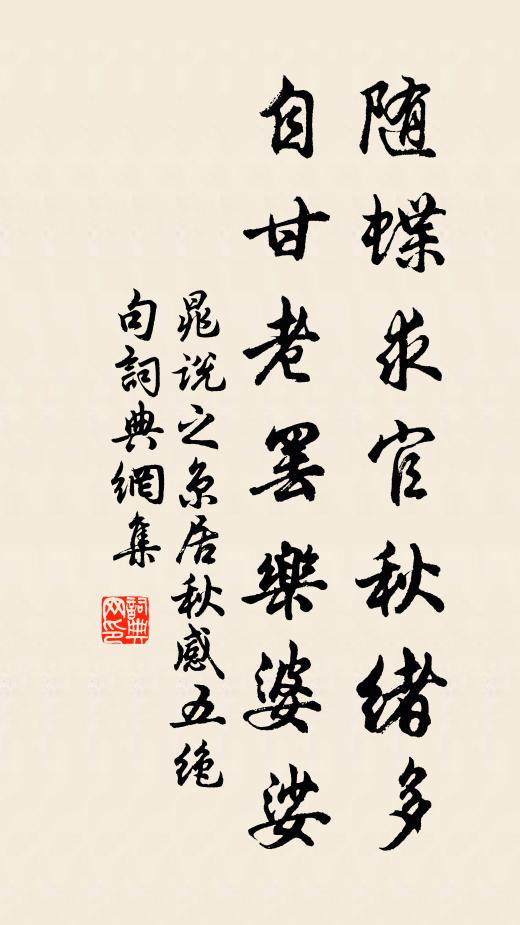 随蝶求官秋緒多
自甘老罢樂婆娑
晁说之京居秋感五绝
句詞典網集
詞典
网印